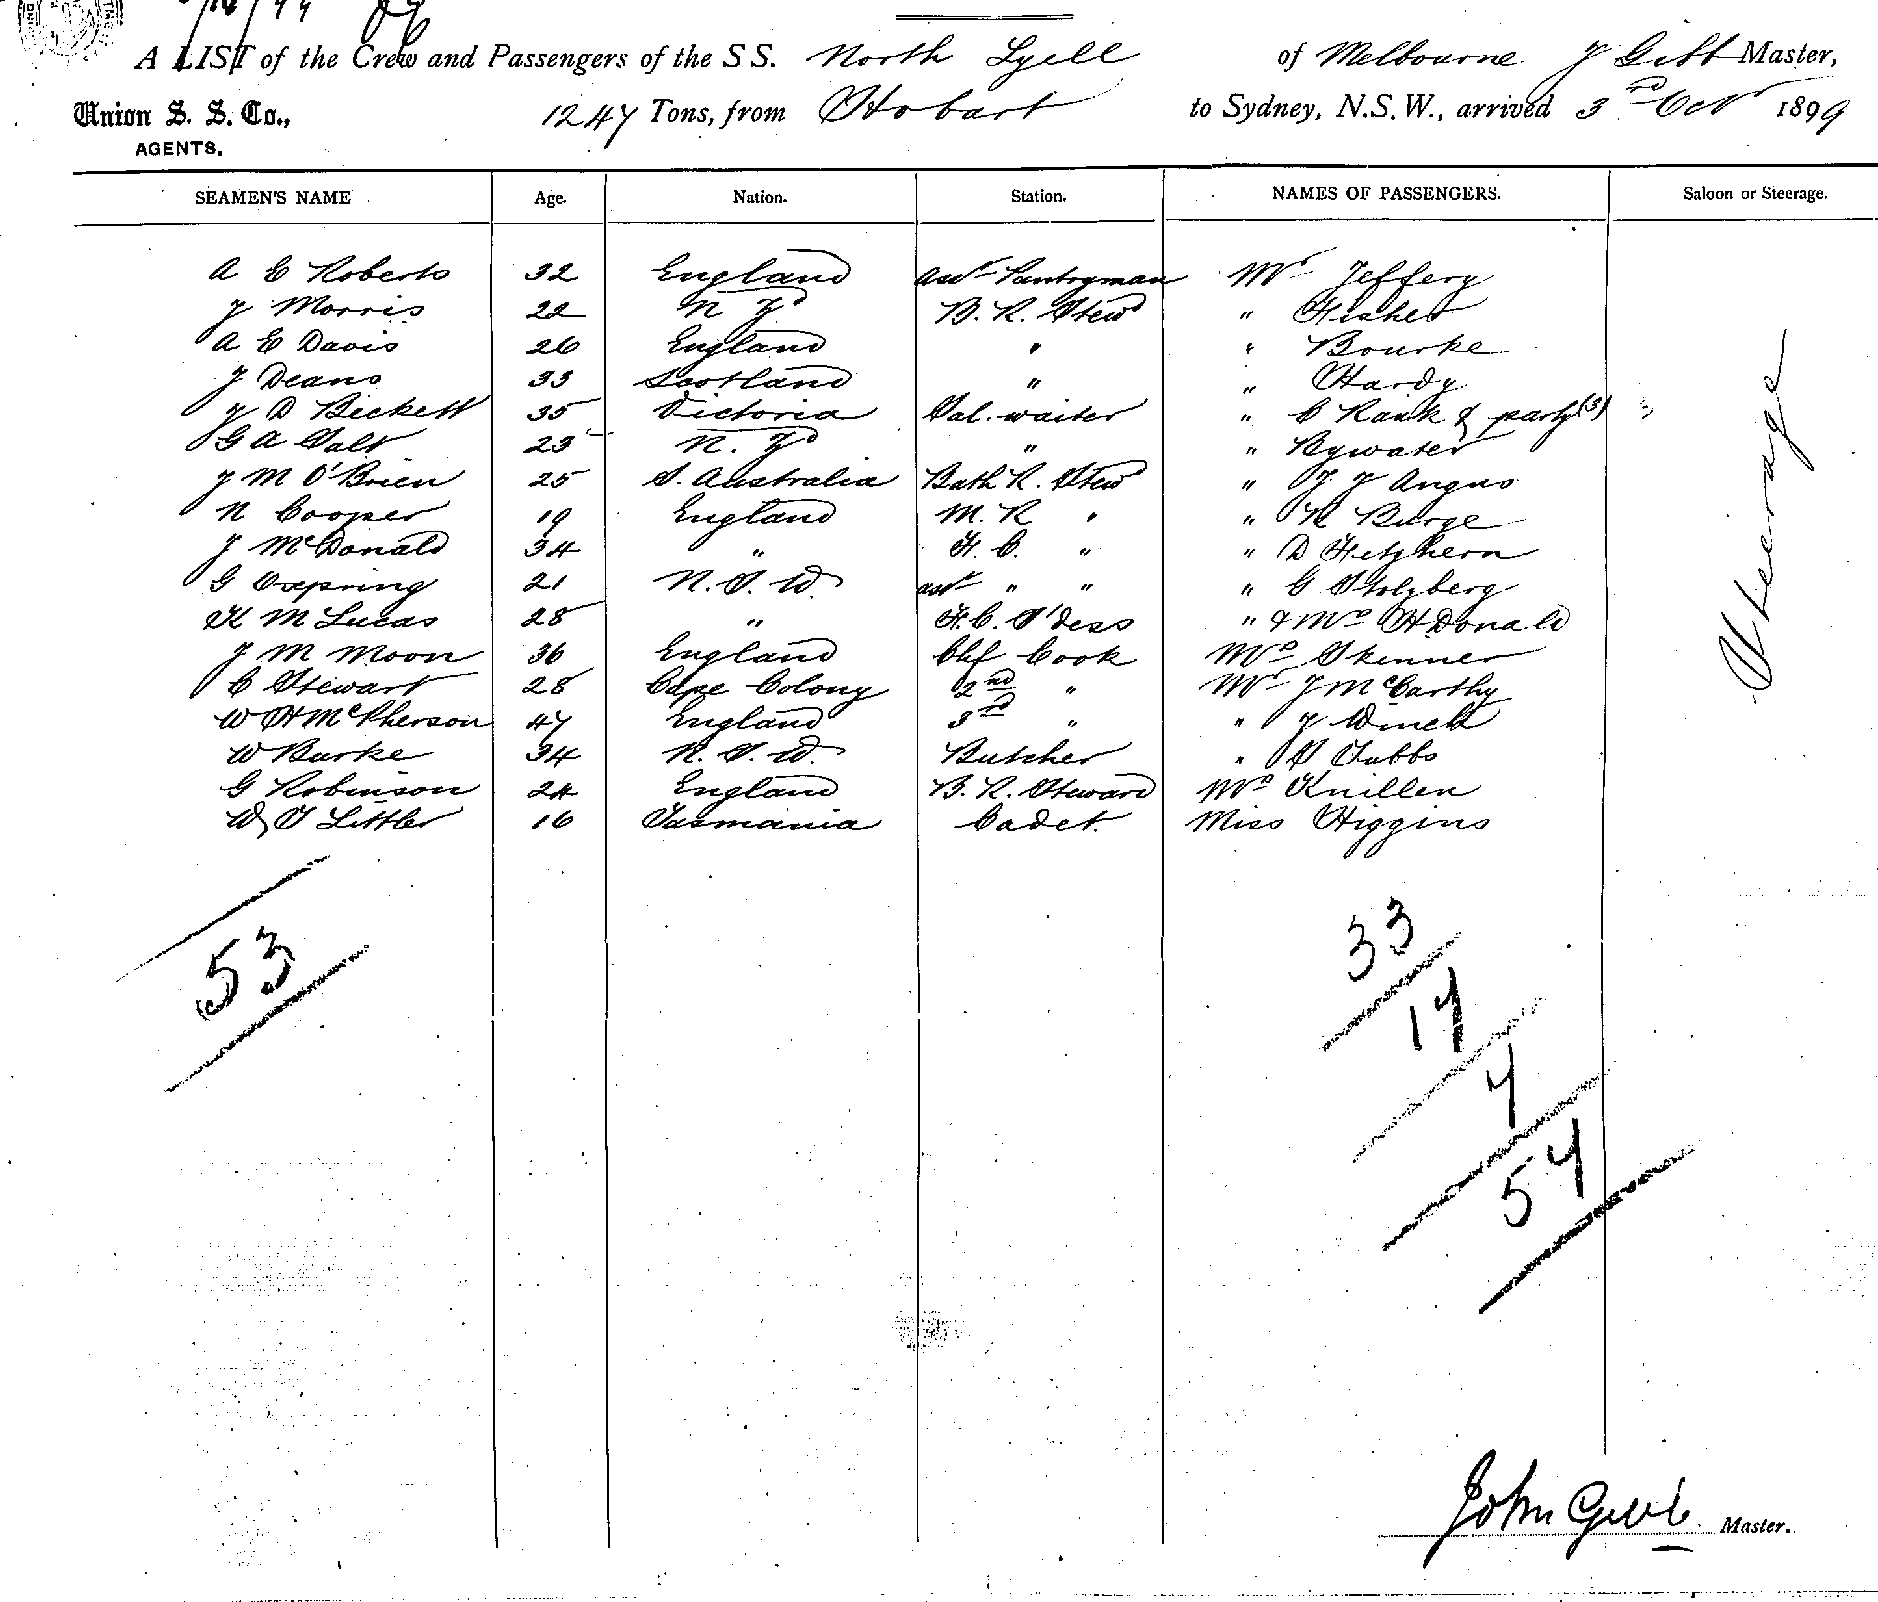 A LIST of the Crew and Passengers of the S S. North Lyell of Melbourne J Gibb Master,
Union S. S. Co., AGENTS. 1247 Tons, from Hobart to Sydney, N.S.W., arrived 3rd Oct 1899
SEAMEN'S NAME Age. Nation. Station. NAMES OF PASSENGERS. Saloon or Steerage.
A E Roberts 32 England asst Pantryman Mr Jeffery
J Morris 22 N Zd B. R. Stewd " Fisher
A E Davis 26 England " " Bourke
J Deans 33 Scotland " " Hardy
J D Beckett 35 Victoria Sal. waiter " C Rank & party (3)
G A Salt 23 N. Zd " " Bywater
J M O'Brien 25 S. Australia Bath R. Stewd " J J Angus
N Cooper 19 England M. R " " N Burge
J McDonald 34 " F. C. " " D
G Oxspring 21 N. S. W. asst " " " G Stolzberg
K M Lucas 28 " F. C. S'dess " & Mrs H Donald
J M Moon 36 England Chf Cook Mrs Skinner
C Stewart 28 Cape Colony 2nd " Mr J McCarthy
W H McPherson 47 England 3rd " " J Winch
W Burke 34 N. S. W. Butcher " Tubbs
G Robinson 24 England B. R. Steward Mrs Knillen
W T Littler 16 Tasmania Cadet. Miss Higgins
Steerage
53
33
17
4
54
John Gibb. Master.